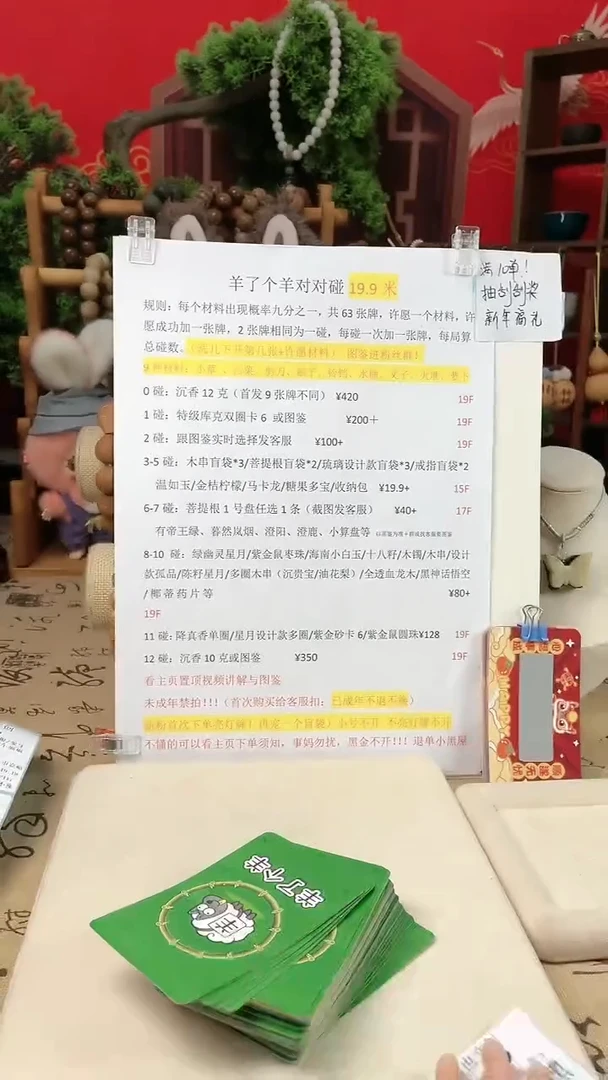 羊了个羊对对碰 19.9 米
规则：每个材料出现概率九分之一，共 63 张牌，许愿一个材料，许
愿成功加一张牌，2 张牌相同为一碰，每碰一次加一张牌，每局算
总碰数。
0 碰：沉香 12 克（首发 9 张牌不同） ¥420 19F
1 碰：特级库克双圈卡 6 或图鉴 ¥200＋ 19F
2 碰：跟图鉴实时选择发客服 ¥100+ 19F
3-5 碰：木串盲袋*3/菩提根盲袋*2/琉璃设计款盲袋*3/戒指盲袋*2
温如玉/金桔柠檬/马卡龙/糖果多宝/收纳包 ¥19.9+ 15F
6-7 碰：菩提根 1 号盘任选 1 条（截图发客服） ¥40+ 17F
有帝王绿、暮然岚烟、澄阳、澄鹿、小算盘等
8-10 碰：绿幽灵星月/紫金鼠枣珠/海南小白玉/十八籽/木镯/木串/设计
款孤品/陈籽星月/多圈木串（沉贵宝/油花梨）/全透血龙木/黑神话悟空
/椰蒂药片等 ¥80+
19F
11 碰：降真香单圈/星月设计款多圈/紫金砂卡 6/紫金鼠圆珠¥128 19F
12 碰：沉香 10 克或图鉴 ¥350 19F
看主页置顶视频讲解与图鉴
未成年禁拍！！！（首次购买给客服扣：已成年不退不换）
不懂的可以看主页下单须知，事妈勿扰，黑金不开！！！退单小黑屋
满10单！
抽刮刮奖
新年高礼
羊了个羊